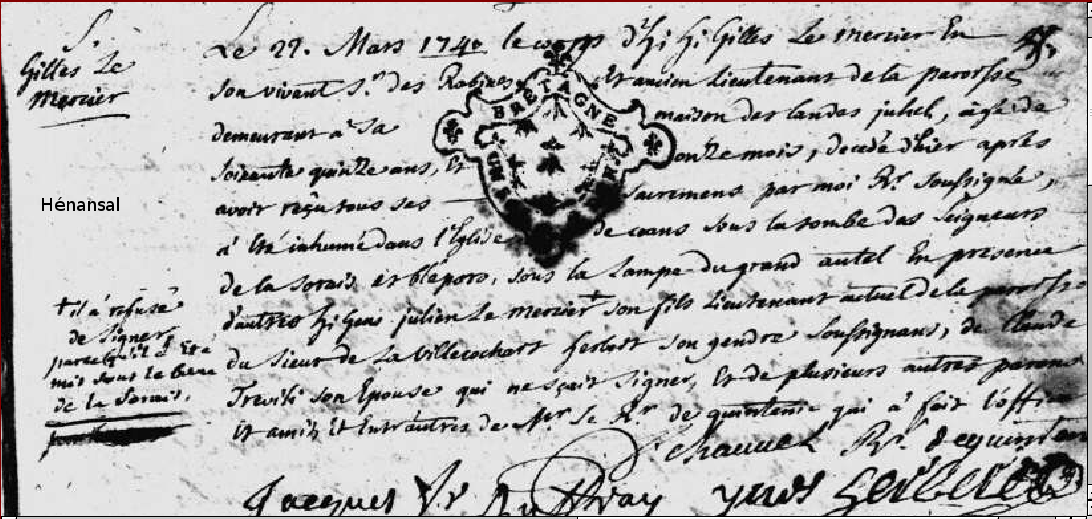 S.
Gilles Le
Mercier
Hénansal
Le 27. Mars 1740 le corps d'h h Gilles Le mercier En
son vivant Sr. des Rabines Et ancien Lieutenant de la paroisse
demeurant à Sa maison des landes juhel, âgé de
soixante quinze ans, Et onze mois, decedé d'hier après
avoir reçu tous ses sacremens par moi Rr. soussigné,
à Eté inhumé dans l'Eglise de ceans sous la tombe des Seigneurs
de la Sorais et bleporo, sous la Lampe du grand autel En presence
d'autres h Gens julien Le mercier + son fils Lieutenant actuel de la paroisse
du Sieur de La Villecochart Gerbert son gendre soussignans, de Claude
son Epouse qui ne sçait signer, Et de plusieurs autres parens
Et amis Et Entr'autres de Mr. le Rr. de quintenic qui à fait l'office
+ il à refusé
de signer
parcequ'il à Eté
mis sous le banc
de la Sorais.
Chauvel Rr. de quintenic
Jacques yves Gerbert
BRETAGNE